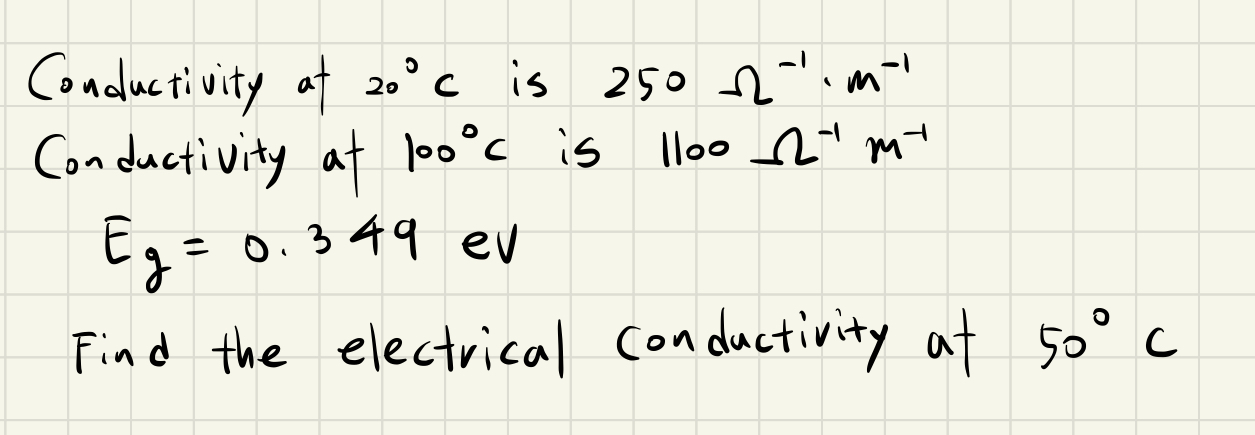 Conductivity at 20°c is 250 Ω⁻¹·m⁻¹
Conductivity at 100°c is 1100 Ω⁻¹ m⁻¹
Eg = 0.349 ev
Find the electrical conductivity at 50° c